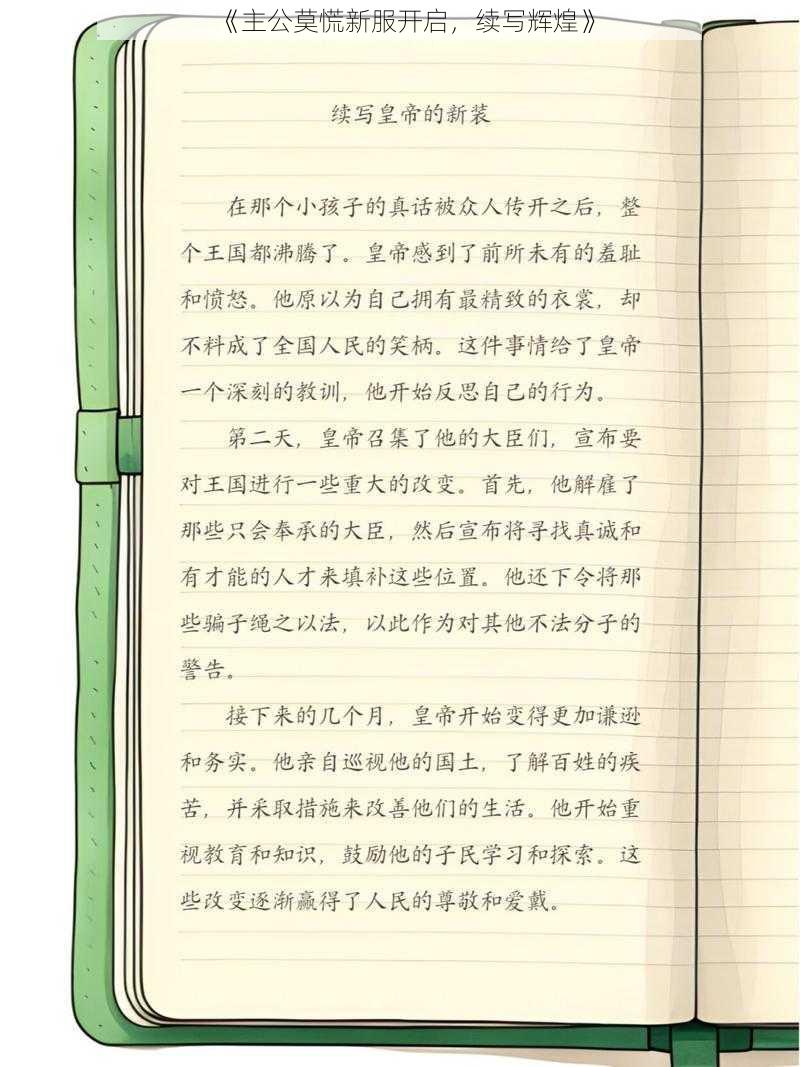 《主公莫慌新服开启，续写辉煌》
续写皇帝的新装
在那个小孩子的真话被众人传开之后，整
个王国都沸腾了。皇帝感到了前所未有的羞耻
和愤怒。他原以为自己拥有最精致的衣裳，却
不料成了全国人民的笑柄。这件事情给了皇帝
一个深刻的教训，他开始反思自己的行为。
第二天，皇帝召集了他的大臣们，宣布要
对王国进行一些重大的改变。首先，他解雇了
那些只会奉承的大臣，然后宣布将寻找真诚和
有才能的人才来填补这些位置。他还下令将那
些骗子绳之以法，以此作为对其他不法分子的
警告。
接下来的几个月，皇帝开始变得更加谦逊
和务实。他亲自巡视他的国土，了解百姓的疾
苦，并采取措施来改善他们的生活。他开始重
视教育和知识，鼓励他的子民学习和探索。这
些改变逐渐赢得了人民的尊敬和爱戴。